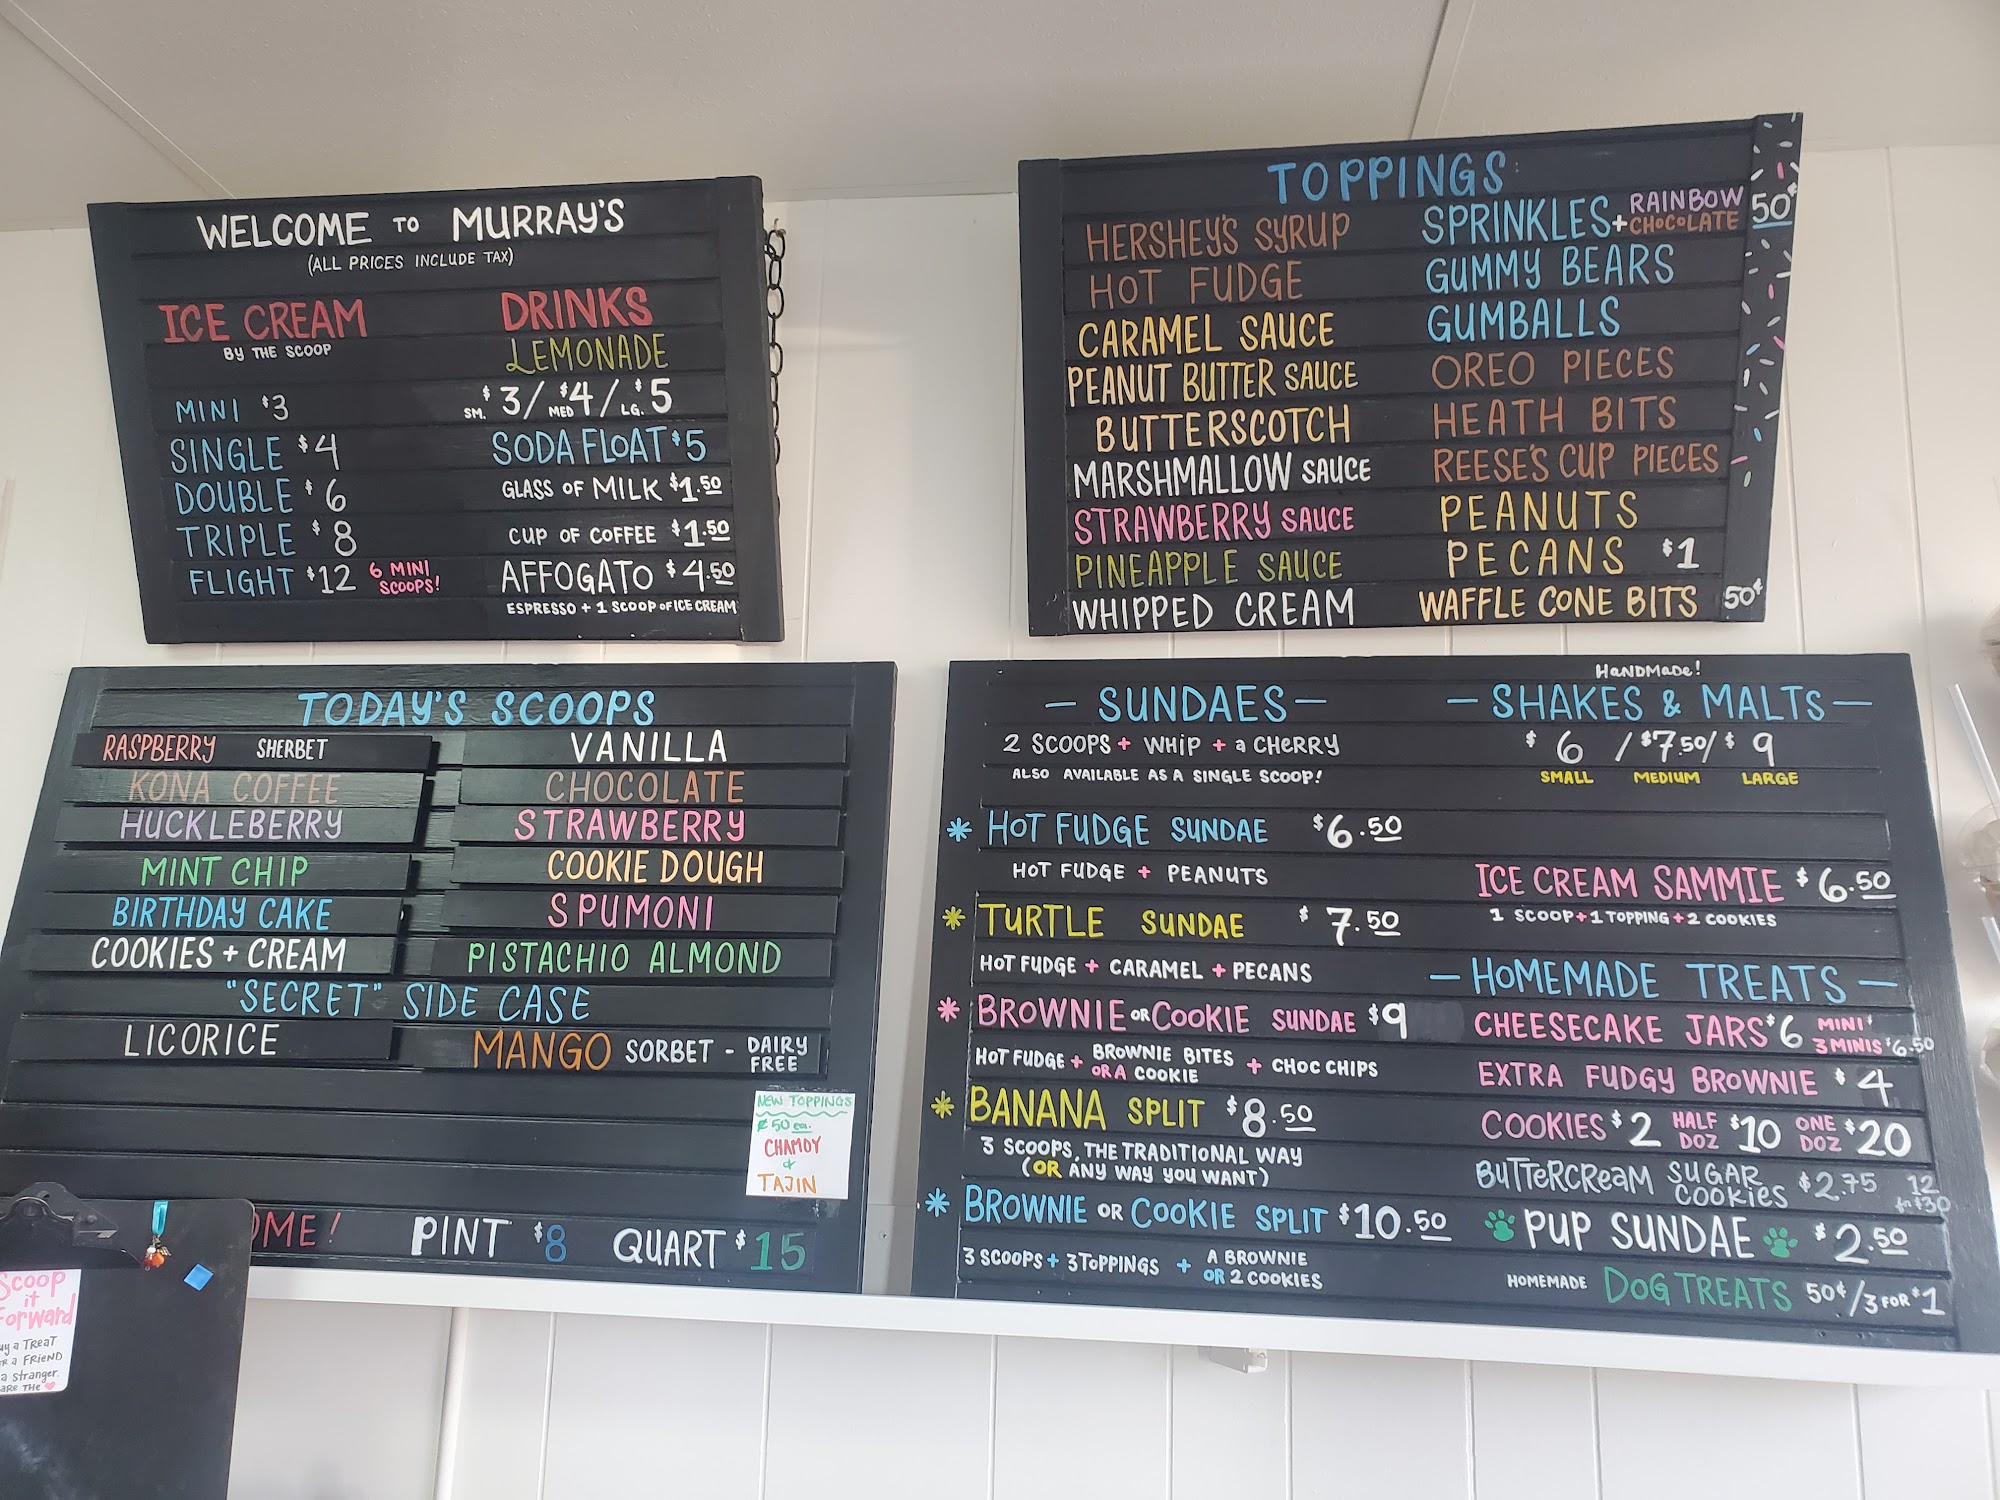 WELCOME TO MURRAY'S
(ALL PRICES INCLUDE TAX)
ICE CREAM
BY THE SCOOP
MINI $3
SINGLE $4
DOUBLE $6
TRIPLE $8
FLIGHT $12 6 MINI SCOOPS!
DRINKS
LEMONADE
SM. $3/ MED $4/ LG. $5
SODA FLOAT $5
GLASS OF MILK $1.50
CUP OF COFFEE $1.50
AFFOGATO $4.50
ESPRESSO + 1 SCOOP OF ICE CREAM
TOPPINGS
HERSHEY'S SYRUP
HOT FUDGE
CARAMEL SAUCE
PEANUT BUTTER SAUCE
BUTTERSCOTCH
MARSHMALLOW SAUCE
STRAWBERRY SAUCE
PINEAPPLE SAUCE
WHIPPED CREAM
SPRINKLES RAINBOW + CHOCOLATE 50¢
GUMMY BEARS
GUMBALLS
OREO PIECES
HEATH BITS
REESE'S CUP PIECES
PEANUTS
PECANS $1
WAFFLE CONE BITS 50¢
TODAY'S SCOOPS
RASPBERRY SHERBET
KONA COFFEE
HUCKLEBERRY
MINT CHIP
BIRTHDAY CAKE
COOKIES + CREAM
VANILLA
CHOCOLATE
STRAWBERRY
COOKIE DOUGH
SPUMONI
PISTACHIO ALMOND
"SECRET" SIDE CASE
LICORICE
MANGO SORBET - DAIRY FREE
NEW TOPPINGS
¢50 ea.
CHAMOY
&
TAJIN
OME! PINT $8 QUART $15
Scoop
it
Forward
a TREAT
a FRIEND
a STRANGER.
THE ♥
— SUNDAES —
2 SCOOPS + WHIP + a CHERRY
ALSO AVAILABLE AS A SINGLE SCOOP!
* HOT FUDGE SUNDAE $6.50
HOT FUDGE + PEANUTS
* TURTLE SUNDAE $7.50
HOT FUDGE + CARAMEL + PECANS
* BROWNIE OR COOKIE SUNDAE $9
HOT FUDGE + BROWNIE BITES OR A COOKIE + CHOC CHIPS
* BANANA SPLIT $8.50
3 SCOOPS, THE TRADITIONAL WAY
(OR ANY WAY YOU WANT)
* BROWNIE OR COOKIE SPLIT $10.50
3 SCOOPS + 3 TOPPINGS + A BROWNIE OR 2 COOKIES
HANDMADE!
— SHAKES & MALTS —
$6 / $7.50 / $9
SMALL MEDIUM LARGE
ICE CREAM SAMMIE $6.50
1 SCOOP + 1 TOPPING + 2 COOKIES
— HOMEMADE TREATS —
CHEESECAKE JARS $6 MINI $ 3 MINIS $6.50
EXTRA FUDGY BROWNIE $4
COOKIES $2 HALF DOZ $10 ONE DOZ $20
BUTTERCREAM SUGAR COOKIES $2.75 12 for $30
PUP SUNDAE $2.50
HOMEMADE DOG TREATS 50¢/3 FOR $1